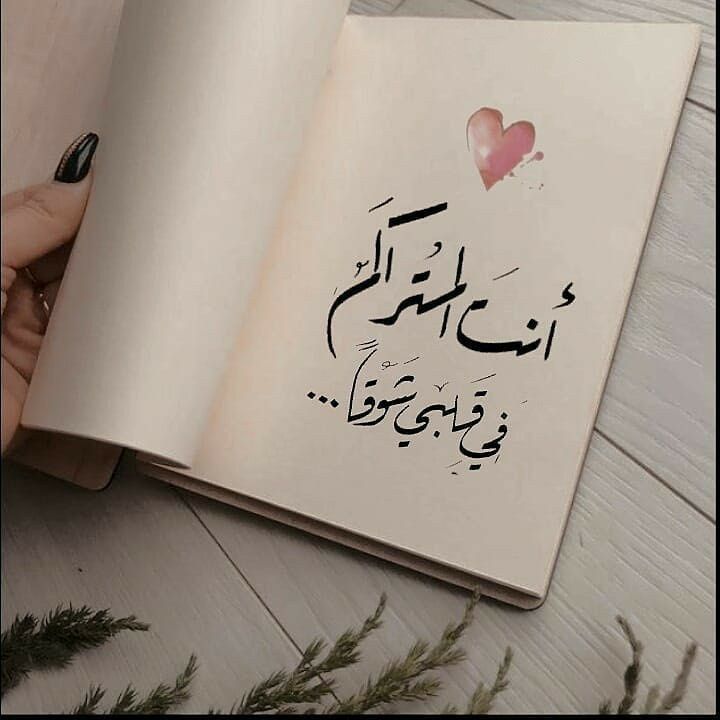 أنتَ المُتراكَمُ
فِي قَلبِي شَوْقاً...